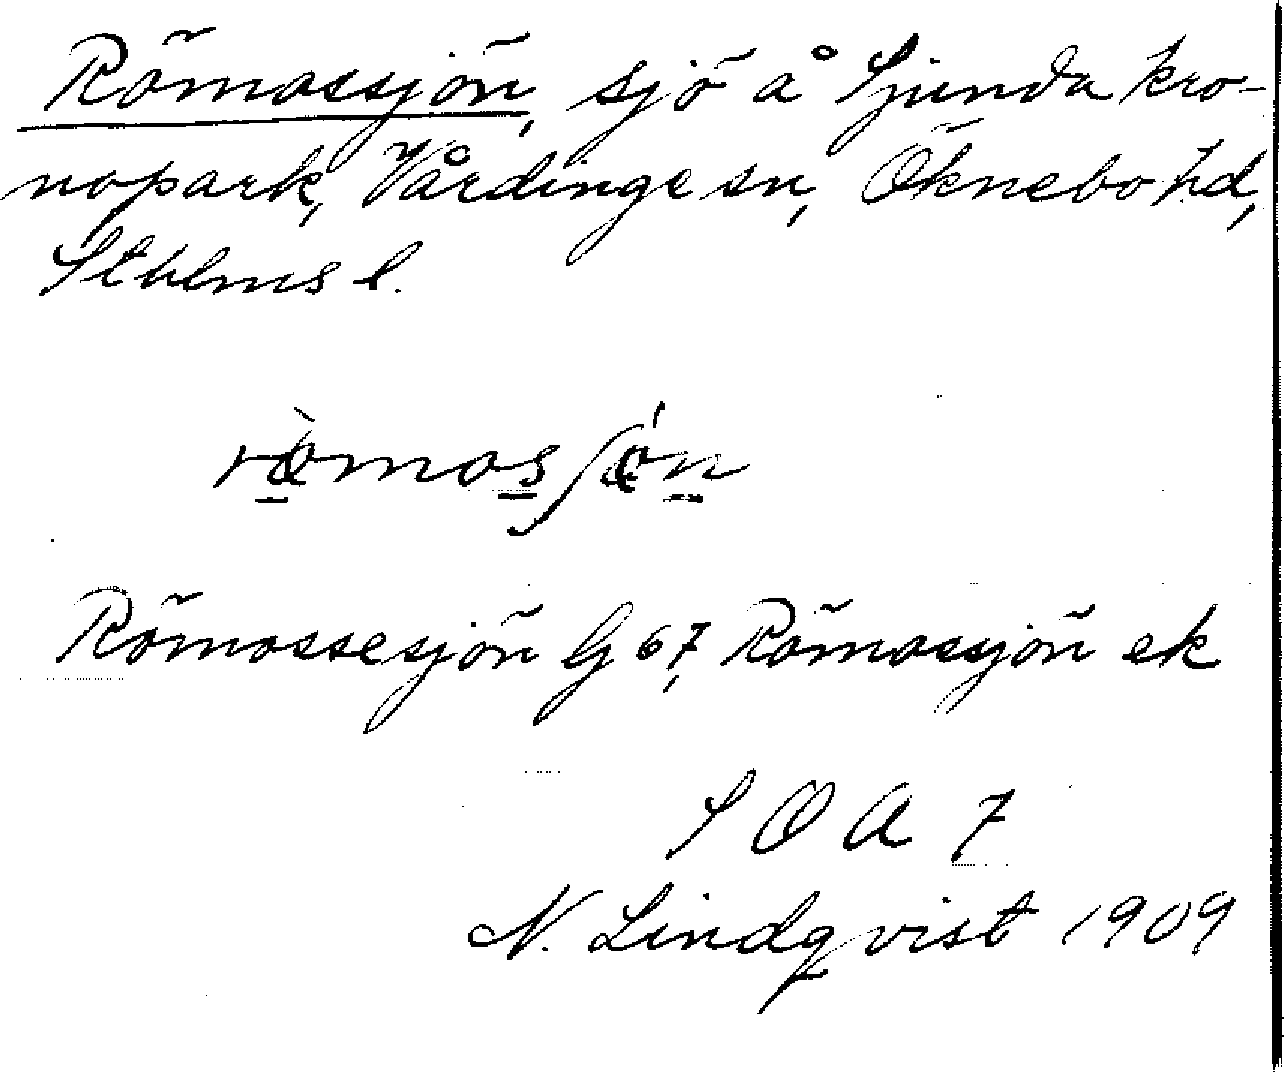 Römossjön, sjö å Ljunda kro-
nopark, Vårdinge sn, Öknebo hd,
Sthlms l.
Römossesjön G 67, Römossjön ek
S O A 7
N. Lindqvist 1909